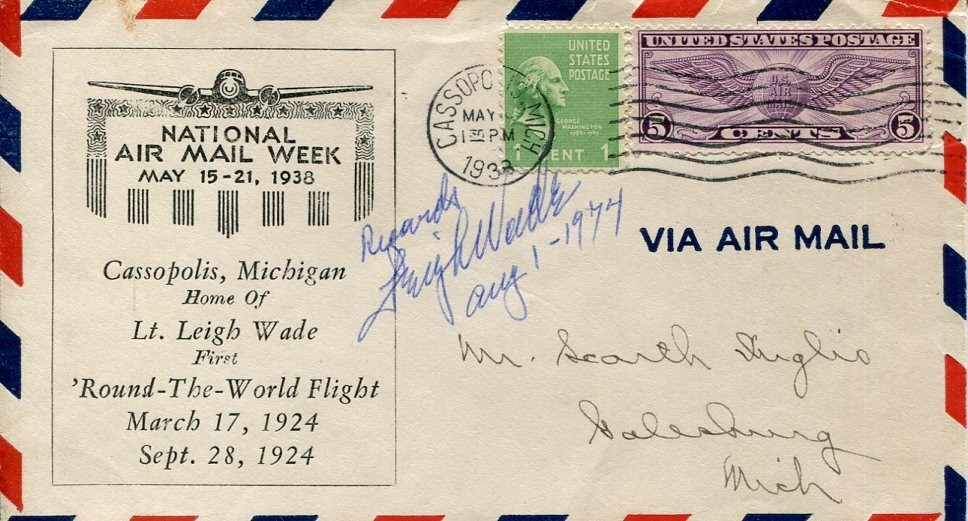 NATIONAL
AIR MAIL WEEK
MAY 15-21, 1938
Cassopolis, Michigan
Home Of
Lt. Leigh Wade
First
'Round-The-World Flight
March 17, 1924
Sept. 28, 1924
CASSOPOLIS, MICH
MAY
1 PM
1938
UNITED
STATES
POSTAGE
GEORGE
WASHINGTON
1 CENT 1
UNITED STATES POSTAGE
U.S.
AIR MAIL
5 CENTS 5
Regards
Leigh Wade
Aug 1-1974
VIA AIR MAIL
Mr. Scarth Inglis
Galesburg
Mich